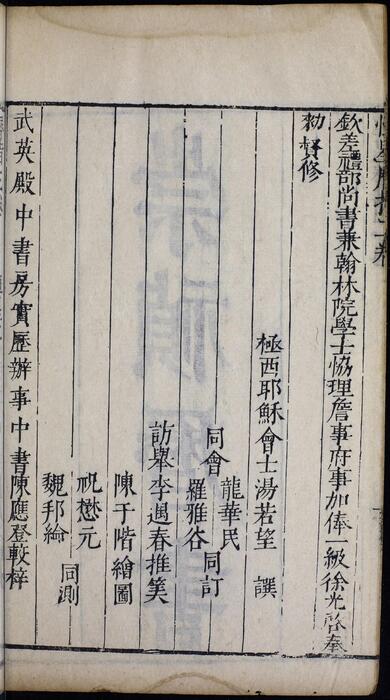 欽差禮部尚書兼翰林院學士恊理詹事府事加俸一級徐光啓奉
勑督修
極西耶穌會士湯若望 譔
同會 龍華民 羅雅谷 同訂
訪舉李遇春推筭
陳于階繪圖
祝懋元 魏邦綸 同測
武英殿中書房實歷辦事中書陳應登較梓